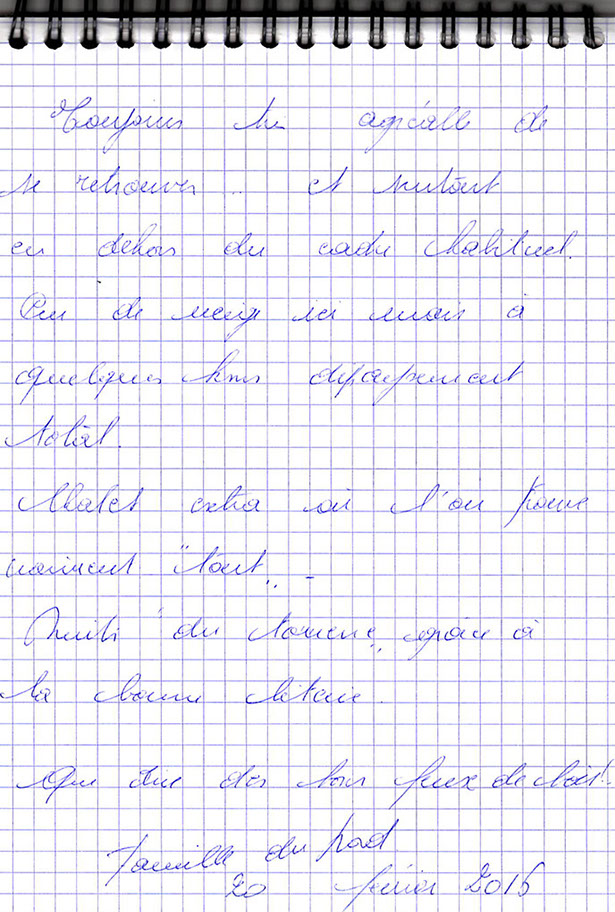 Toujours très agréable de
se retrouver .. et surtout
en dehors du cadre habituel.
Peu de neige ici mais à
quelques kms dépaysement
total.
Chalet extra où l'on trouve
vraiment "tout" -
Nuits "du tonnerre" grâce à
la bonne literie.
Que dire des bons feux de bois!..
Famille du
20 février 2016